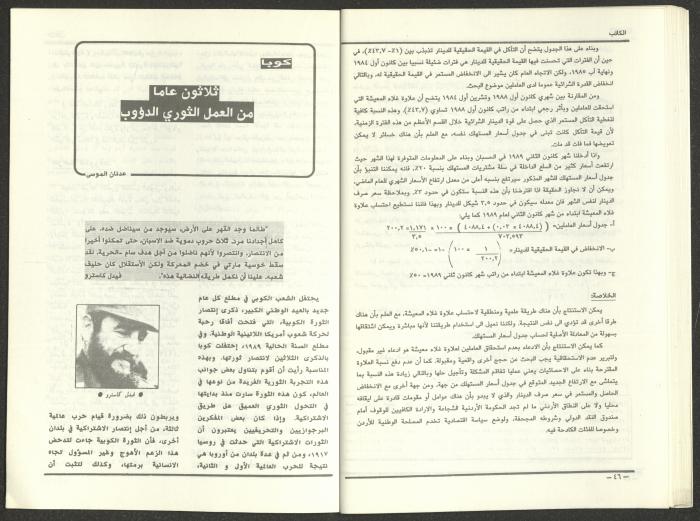 الكاتب
وبناء على هذا الجدول يتضح أن التآكل في القيمة الحقيقية للدينار تذبذب بين (١٪-٤٣,٧٪)، في
حين أن الفترات التي تحسنت فيها القيمة الحقيقية للدينار هي فترات ضئيلة نسبيا بين كانون أول ١٩٨٤
ونهاية آب ١٩٨٥، ولكن الاتجاه العام كان يشير الى الانخفاض المستمر في القيمة الحقيقية له، وبالتالي
انخفاض القدرة الشرائية عموما لدى العاملين موضوع البحث.
ومن المقارنة بين شهري كانون أول ١٩٨٨ وتشرين أول ١٩٨٤ يتضح أن علاوة غلاء المعيشة التي
استحقت للعاملين وبأثر رجعي ابتداء من راتب كانون أول ١٩٨٨ تساوي (٤٣,٧٪)، وهذه النسبة كافية
لتغطية التآكل المستمر الذي حصل على قوة الدينار الشرائية خلال القسم الأعظم من هذه الفترة الزمنية،
لأن قيمة التآكل كانت تبنى في جدول أسعار المستهلك نفسه، مع العلم بأن هناك خسائر لا يمكن
تعويضها فما فات قد مات.
واذا أدخلنا شهر كانون الثاني ١٩٨٩ في الحسبان وبناء على المعلومات المتوفرة لهذا الشهر حيث
ارتفعت أسعار كثير من السلع الداخلة في سلة مشتريات المستهلك بنسبة ٢٠٪، فانه يمكننا التنبؤ بأن
جدول أسعار المستهلك للشهر المذكور سيرتفع بنسبة أعلى من معدل ارتفاع الأسعار الشهري للعام الماضي،
ويمكن أن لا نجاوز الحقيقة اذا افترضنا بأن هذه النسبة ستكون في حدود ٣٪، وبملاحظة سعر صرف
الدينار لنفس الشهر فان معدله سيكون في حدود ٣,٥ شيكل للدينار وبهذا فاننا نستطيع احتساب علاوة
غلاء المعيشة ابتداء من شهر كانون الثاني لعام ١٩٨٩ كما يلي:
أ- جدول أسعار العاملين=
ب- الانخفاض في القيمة الحقيقية للدينار=
ج- وبهذا تكون علاوة غلاء المعيشة ابتداء من راتب شهر كانون ثاني ١٩٨٩= ٥٠٪
الخلاصة:
يمكن الاستنتاج بأن هناك طريقة علمية ومنطقية لاحتساب علاوة غلاء المعيشة، مع العلم بأن هناك
طرقا أخرى قد تؤدي الى نفس النتيجة. ولكننا نميل الى استخدام طريقتنا لأنها مباشرة ويمكن اشتقاقها
بسهولة من المعادلة الأصلية لحساب جدول أسعار المستهلك.
كما يمكن الاستنتاج بأن الادعاء بعدم استحقاق العاملين لعلاوة غلاء معيشة هو ادعاء غير مقبول،
ولتبرير عدم الاستحقاقية يجب البحث عن حجج أخرى واقعية ومقبولة. كما أن عدم دفع نسبة العلاوة
المقترحة بناء على الاحصائيات يعني عمليا تفاقم المشكلة وتأجيل حلها وبالتالي زيادة هذه النسبة بما
يتماشى مع الارتفاع الجديد المتوقع في جدول أسعار المستهلك من جهة، ومن جهة أخرى مع الانخفاض
الحاصل والمستمر في سعر صرف الدينار والذي لا يبدو بأن هناك عوامل أو مقومات قادرة على ايقافه
محليا ولا على النطاق الأردني ما لم تجد الحكومة الأردنية الشجاعة والارادة الكافيين للوقوف أمام
صندوق النقد الدولي وشروطه المجحفة، ولوضع سياسة اقتصادية تخدم المصلحة الوطنية للأردن
وخصوصا للفئات الكادحة فيه.
-٤٦-
كوبا
ثلاثون عاما
من العمل الثوري الدؤوب
عدنان الموسى
"طالما وجد القهر على الأرض، سيوجد من سيناضل ضده. على
كاهل أجدادنا مرت ثلاث حروب دموية ضد الاسبان، حتى تمكنوا أخيرا
من الانتصار، وانتصروا لأنهم ناضلوا من أجل هدف سام -الحرية. لقد
سقط خوسيه مارتي في خضم المعركة ولكن الاستقلال كان حليف
شعبه. علينا أن نكمل طريقه النضالية هذه". فيدل كاسترو
يحتفل الشعب الكوبي في مطلع كل عام
جديد بالعيد الوطني الكبير، ذكرى إنتصار
الثورة الكوبية، التي فتحت آفاقا رحبة
لحركة شعوب أمريكا اللاتينية الوطنية. وفي
مطلع السنة الحالية ١٩٨٩، إحتفلت كوبا
بالذكرى الثلاثين لانتصار ثورتها، وبهذه
المناسبة رأيت أن أقوم بتناول بعض جوانب
هذه التجربة الثورية الفريدة من نوعها في
العالم، كون هذه الثورة سارت منذ بدايتها
في التحول الثوري العميق على طريق
الاشتراكية. وإذا كان بعض المفكرين
البرجوازيين والتحريفيين يعتبرون أن
الثورات الاشتراكية التي حدثت في روسيا
١٩١٧، ومن ثم في عدة بلدان من أوروبا هي
نتيجة للحرب العالمية الأولى والثانية،
● فيدل كاسترو ●
ويربطون ذلك بضرورة قيام حرب عالمية
ثالثة، من أجل إنتصار الاشتراكية في بلدان
أخرى، فأن الثورة الكوبية جاءت لتدحض
هذا الزعم الأهوج وغير المسؤول تجاه
الانسانية برمتها، وكذلك لتثبت أن